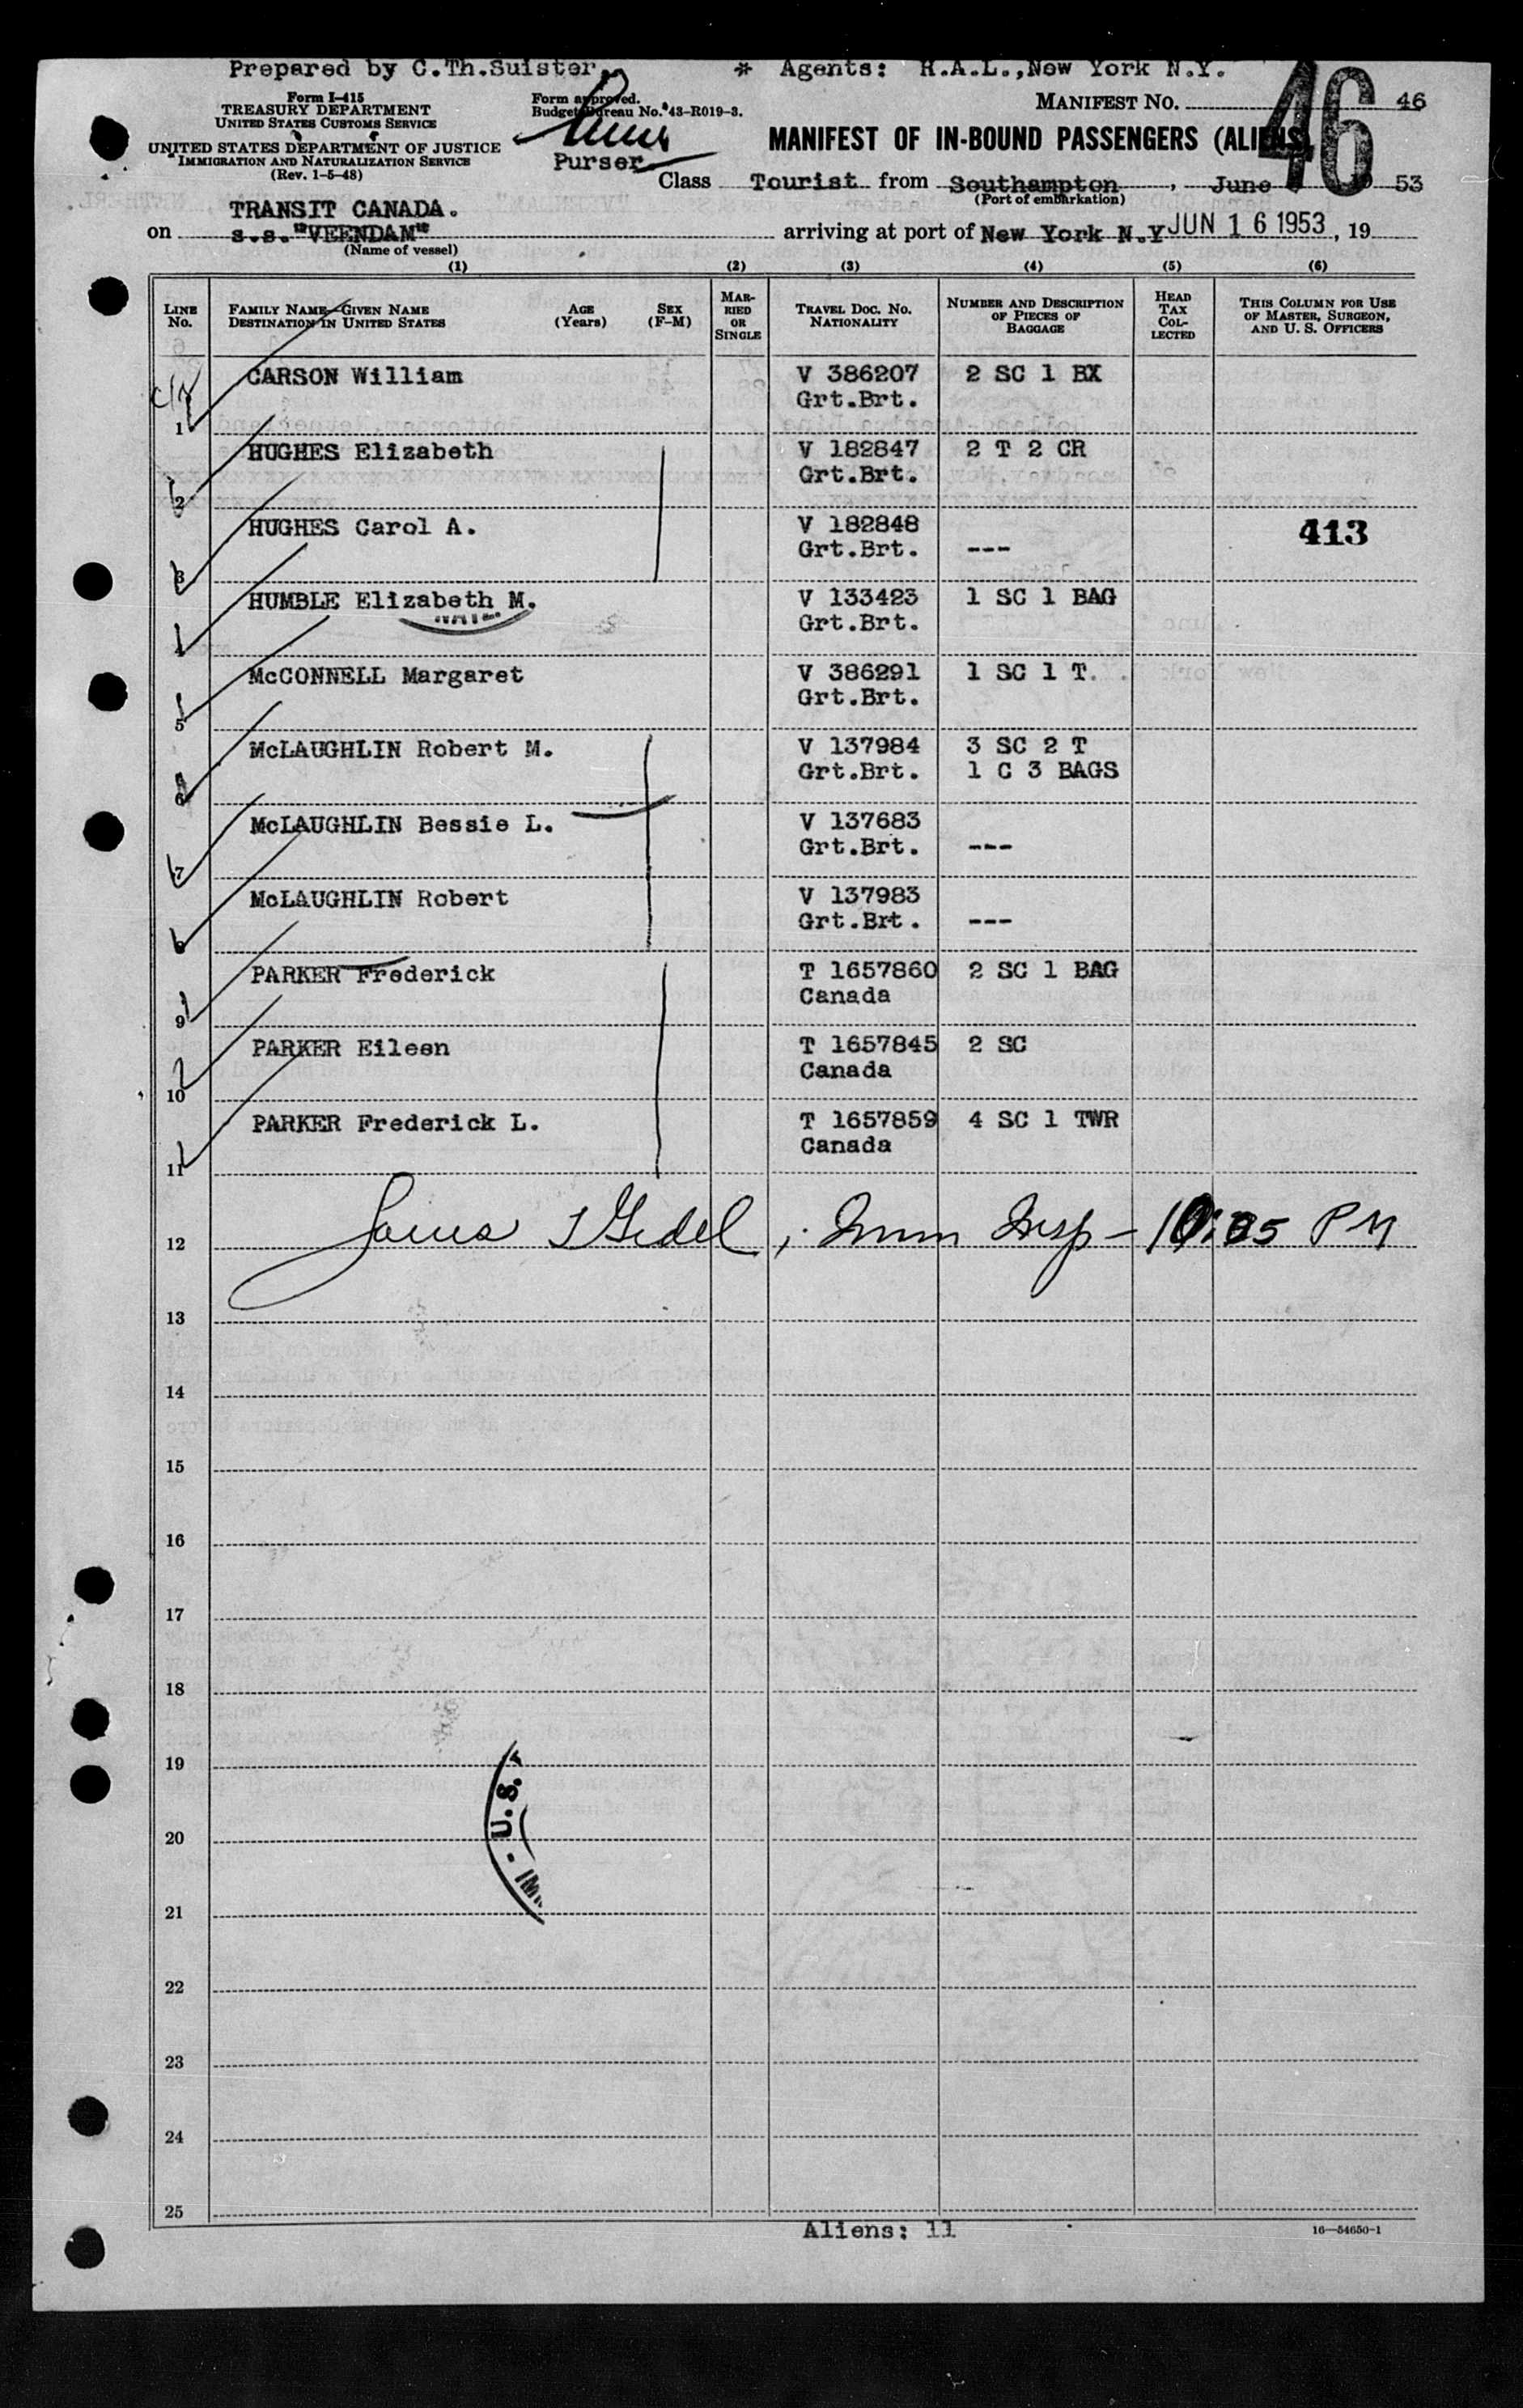 Prepared by C.Th.Suister. * Agents: H.A.L.,New York N.Y.
Form I-415
TREASURY DEPARTMENT
UNITED STATES CUSTOMS SERVICE
UNITED STATES DEPARTMENT OF JUSTICE
IMMIGRATION AND NATURALIZATION SERVICE
(Rev. 1-5-48)
Form approved.
Budget Bureau No. 43-R019-3.
Purser
MANIFEST NO. 46
46
MANIFEST OF IN-BOUND PASSENGERS (ALIENS)
Class Tourist from Southampton, June 53
(Port of embarkation)
TRANSIT CANADA.
on s.s."VEENDAM" arriving at port of New York N.Y JUN 16 1953, 19
(Name of vessel)
(1) (2) (3) (4) (5) (6)
LINE No.
FAMILY NAME—GIVEN NAME
DESTINATION IN UNITED STATES
AGE (Years)
SEX (F-M)
MARRIED OR SINGLE
TRAVEL DOC. NO. NATIONALITY
NUMBER AND DESCRIPTION OF PIECES OF BAGGAGE
HEAD TAX COLLECTED
THIS COLUMN FOR USE OF MASTER, SURGEON, AND U. S. OFFICERS
1 CARSON William V 386207 2 SC 1 BX
Grt.Brt.
2 HUGHES Elizabeth V 182847 2 T 2 CR
Grt.Brt.
3 HUGHES Carol A. V 182848 413
Grt.Brt. ---
HUMBLE Elizabeth M. V 133423 1 SC 1 BAG
Grt.Brt.
5 McCONNELL Margaret V 386291 1 SC 1 T.
Grt.Brt.
6 McLAUGHLIN Robert M. V 137984 3 SC 2 T
Grt.Brt. 1 C 3 BAGS
7 McLAUGHLIN Bessie L. V 137683
Grt.Brt. ---
8 McLAUGHLIN Robert V 137983
Grt.Brt. ---
9 PARKER Frederick T 1657860 2 SC 1 BAG
Canada
10 PARKER Eileen T 1657845 2 SC
Canada
11 PARKER Frederick L. T 1657859 4 SC 1 TWR
Canada
12 Imm Insp - PM
13
14
15
16
17
18
19
20
U.S. IM
21
22
23
24
25
Aliens: 11
16—54650-1